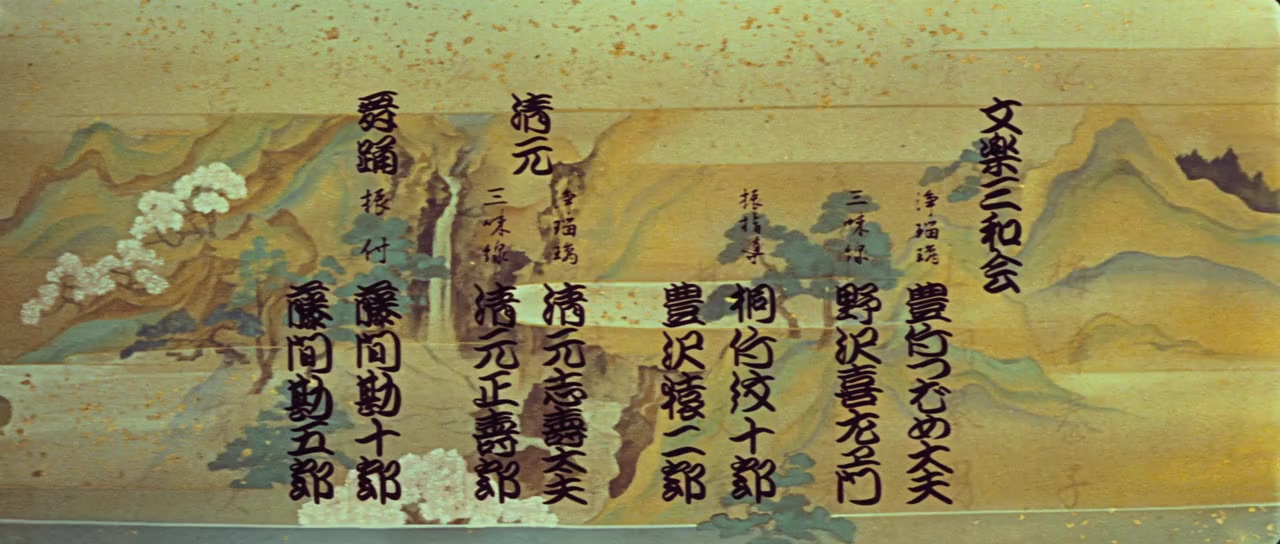 文楽三和会
浄瑠璃 豊竹つばめ太夫
三味線 野沢喜左ヱ門
振指導 桐竹紋十郎
豊沢猿二郎
清元
浄瑠璃 清元志壽太夫
三味線 清元正壽郎
舞踊
振付 藤間勘十郎
藤間勘五郎